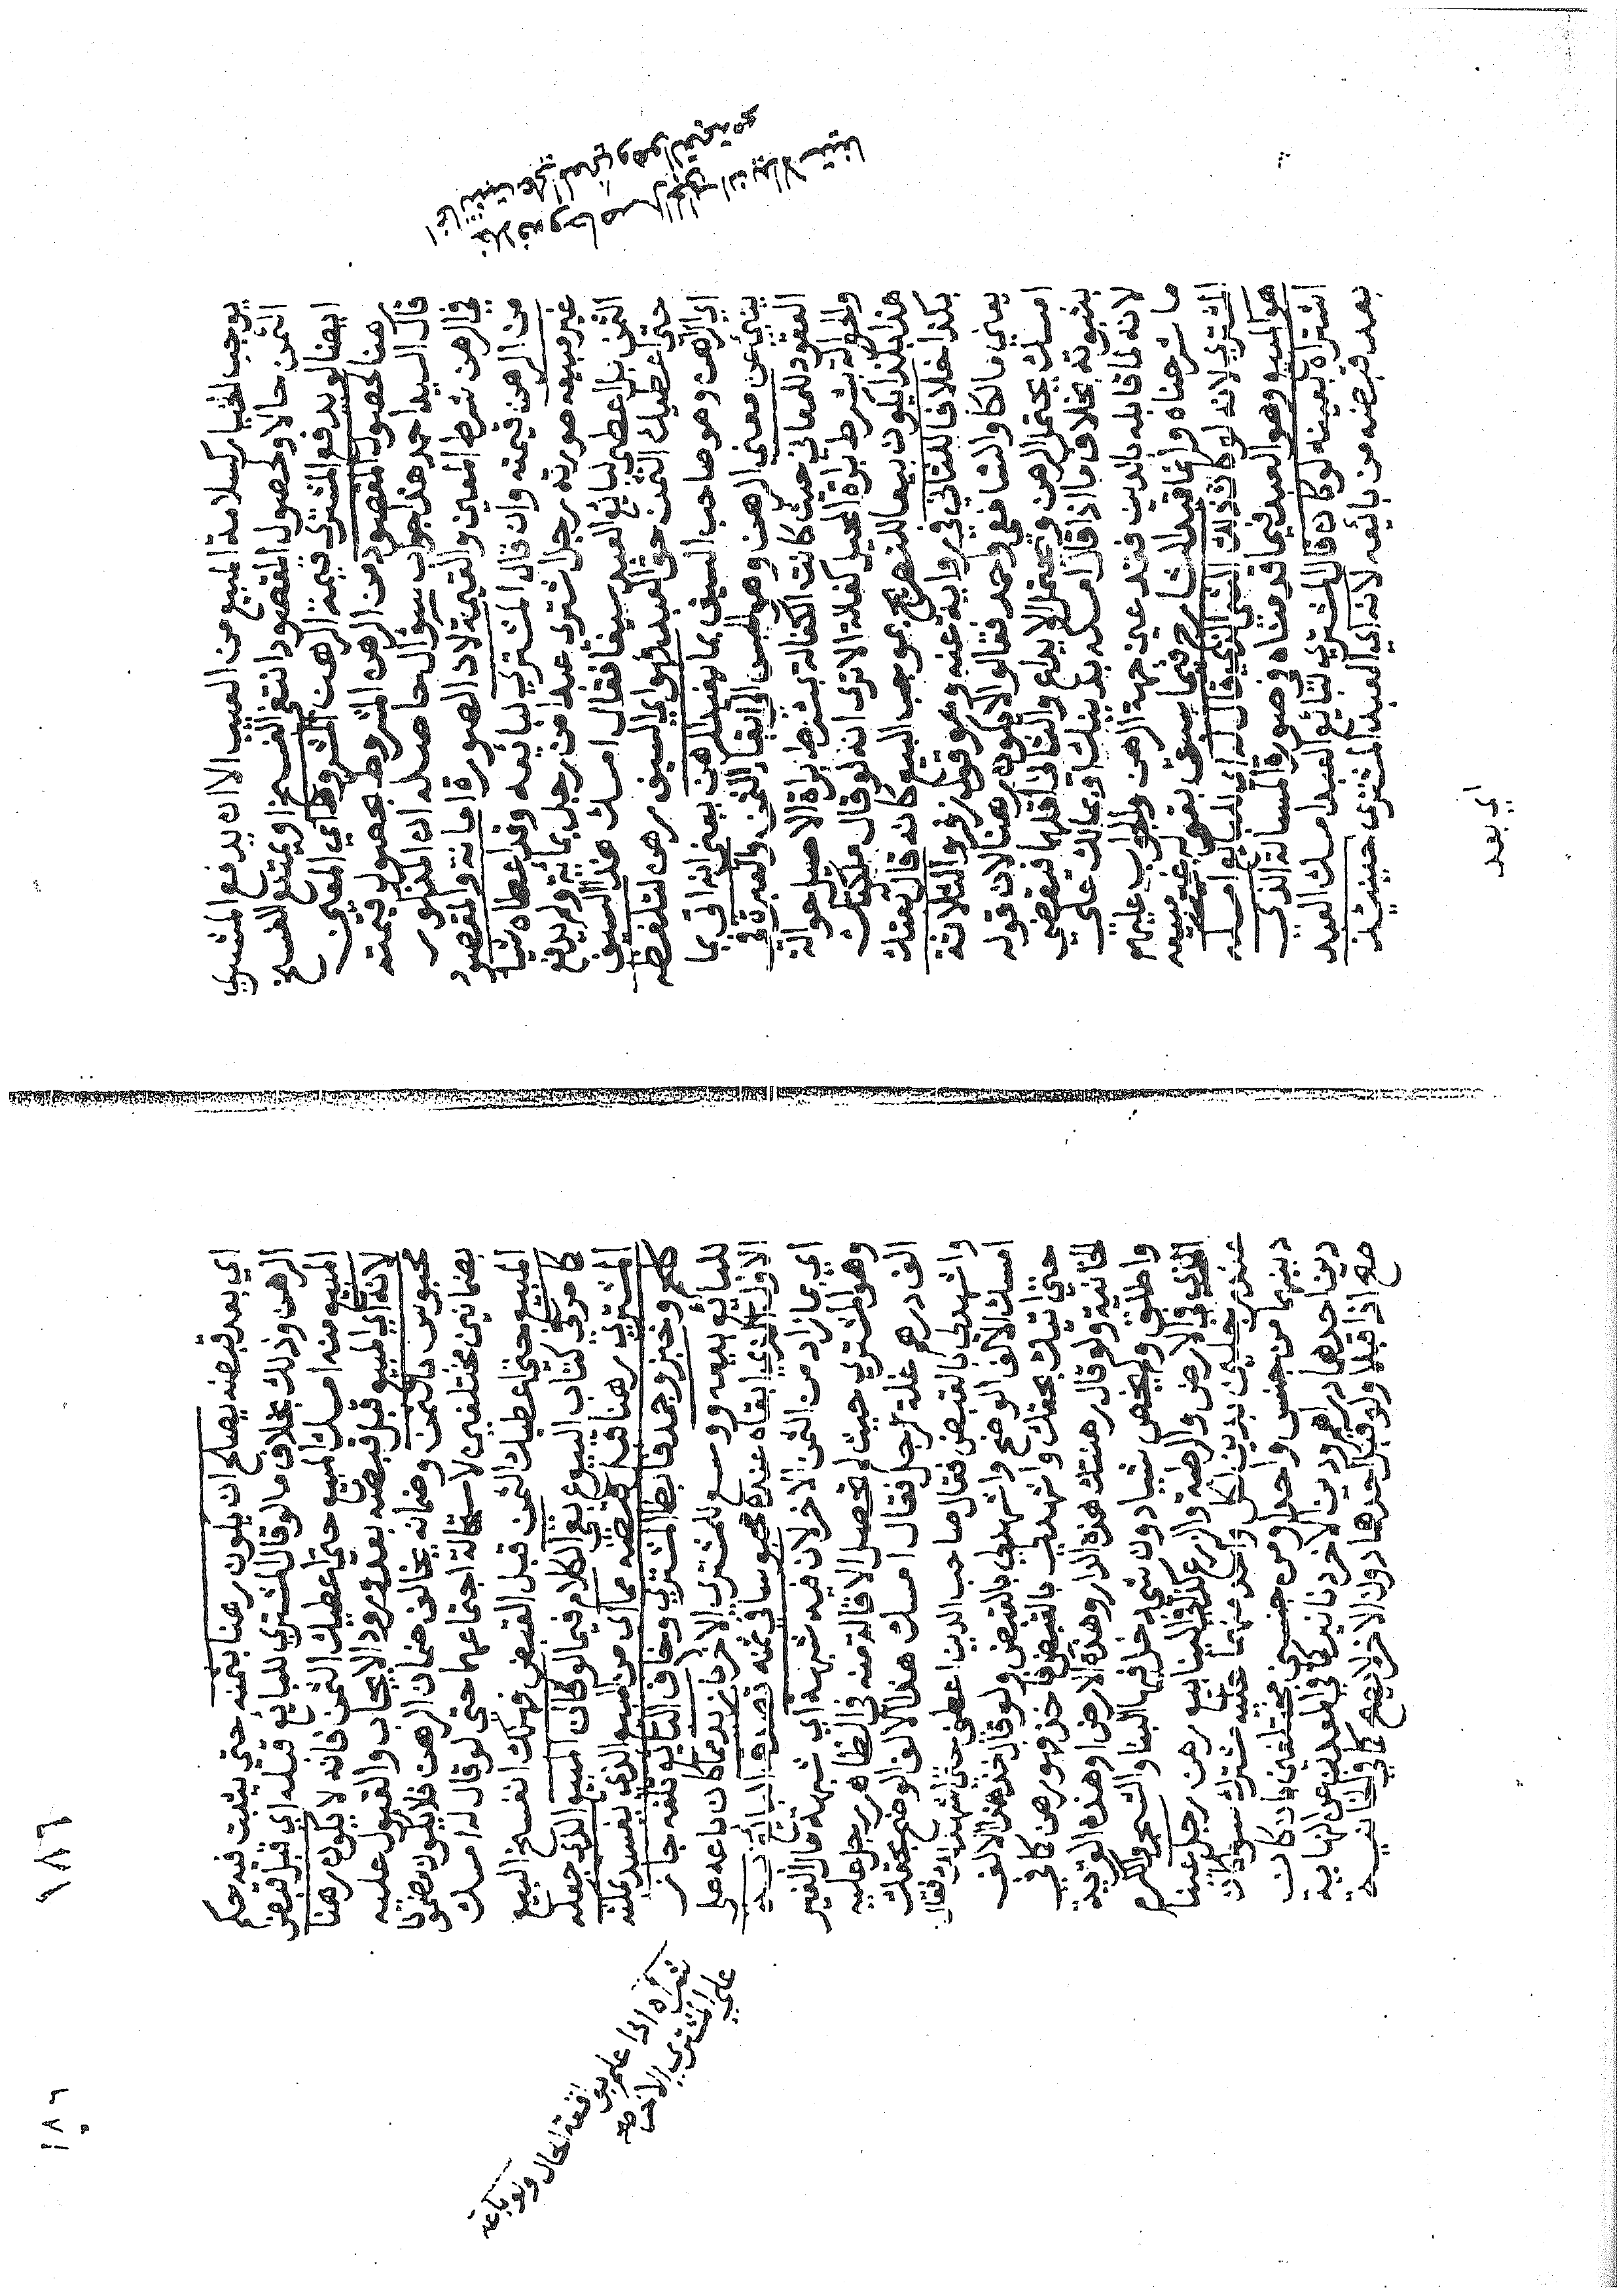 يوجب الخيار كسلامة المبيع من العيب الا ان يدفع المشتري
الثمن حالا ولحصول المقصود انتفي الفسخ او يمتنع الفسخ
ايضا لو يدفع المشتري قيمة الرهن المشروط اي المعين
رهنا لحصول المقصود من الرهن المشروط بحصول قيمته
قال السيد احمد هذا جواب سؤال حاصله ان المذكور
في الرهن شرط المعين والقيمة الصورة امانة والمقصود
من الرهن قيمته وان قال المشتري لبايعه وقد اعطاه شيا
غير مبيعه صورته رجل اشتري عبدا من رجل بماية ولم يدفع
الثمن بل اعطي لبايع العبد سيفا فقال امسك هذا السيف
حتي اعطيك الثمن حق العبد فهو اي السيف رهن لتلفظه
اي الراهن وهو صاحب السيف بما يفيد الرهن يعني انه اتي بما
ينبئ عن معني الرهن وهو الحبس الي ايفاء الثمن والعبرة في
العقود للمعاني حيث كانت الكفالة بشرط براة الاصيل حوالة
والحوالة بشرط براة المحيل كفالة الا تري انه لو قال ملكتك
هذا بكذا يكون بيعا للتصريح بموجب البيع كانه قال بعتك
بكذا خلافا للثاني في رواية عنه وهو قول زفر والثلاثة
يعني مالكا والشافعي واحمد فقالوا لا يكون رهنا لان قوله
امسك يحتمل الرهن ويحتمل الايداع والثاني اقلهما فيقضي
بثبوته بخلاف ما اذا قال امسكه بدينك او بمالك علي
لانه لما قابله بالدين فقد عين جهة الرهن والجواب عليهم
ما شرحناه وانما قيد الشارح فيما سبق بقوله غير مبيعه
المشتري لانه لو كان ذلك الشئ الذي قال له اي للبايع امسكه
هو المبيع وهو العبد فيما قدمناه في صورة المسالة الذي
اشتراه بعينه لو كان قال المشتري لبائع العبد امسك العبد
بعد قبضه من بائعه لانه اي العبد المشتري حينئذ
اي بعد
١٨٦
اي بعد قبضه يصلح ان يكون رهنا بثمنه حتي يثبت فيه حكم
الرهن وذلك بخلاف ما لو قال المشتري للبائع قبله اي قبل قبض
المبيع منه امسك المبيع حتي اعطيك الثمن فانه لا يكون رهنا
لانه اي المبيع قبل قبضه بعد ورود الايجاب والقبول عليه
محبوس بالثمن وضمانه يخالف ضمان الرهن فلا يكون مضمونا
بضمانين مختلفين لاستحالة اجتماعهما حتي لو قال له امسك
المبيع حتي اعطيك الثمن قبل القبض فهلك انفسخ البيع
كما مر في كتاب البيوع بقي الكلام فيما لو كان المبيع الذي جعله
المشتري رهنا قبل قبضه مما اي من المبيع الذي يفسد بمكثه
كلحم وخبز وجمد فابطا المشتري وخاف البايع تلفه جاز
للبائع بيعه ووسع للمشتري الاخر ان باعه علي
الاول الذي ابقاه عنده محبوسا في ثمنه تصدق البائع به
اي بما زاد من الثمن الاخر لان فيه شبهة اي شبهة مال الغير
وهو المشتري حيث لم تحصل الاقالة منه في الظاهر رجل عليه
الف درهم غلة لرجل فقال امسك هذا الالف الوضح بحقك
واشهد لي بالقبض فقال صاحب الدين اعطني حتي اشهد لك فقال
امسك الالف الوضح واشهد لي بالقبض ولو قال خذ هذا الالف
حتي اتيك بحقك واشهد لي بالقبض فاخذ فهو رهن كما في
الخانية ولو قال رهنتك هذه الدار وهذه الارض او هذه القرية
واطلق ولم يخص شيا دون شئ دخل فيها البنا والشجر والكرم
الذي في الارض والرطبة والزرع كذا في الينابيع رهن رجل عينا
عند رجلين بدين لكل واحد منهما عليه اشتركا سواء كان
دينهما من جنس واحد او من جنسين مختلفين بان كان
دين احدهما دراهم ودين الاخر دنانير كما في المعدن عن النهاية
صح اذا قبلا ولو قبل احدهما دون الاخر لا يصح كما في الخانية
شراه اذا علم
علي المشتري الاخر